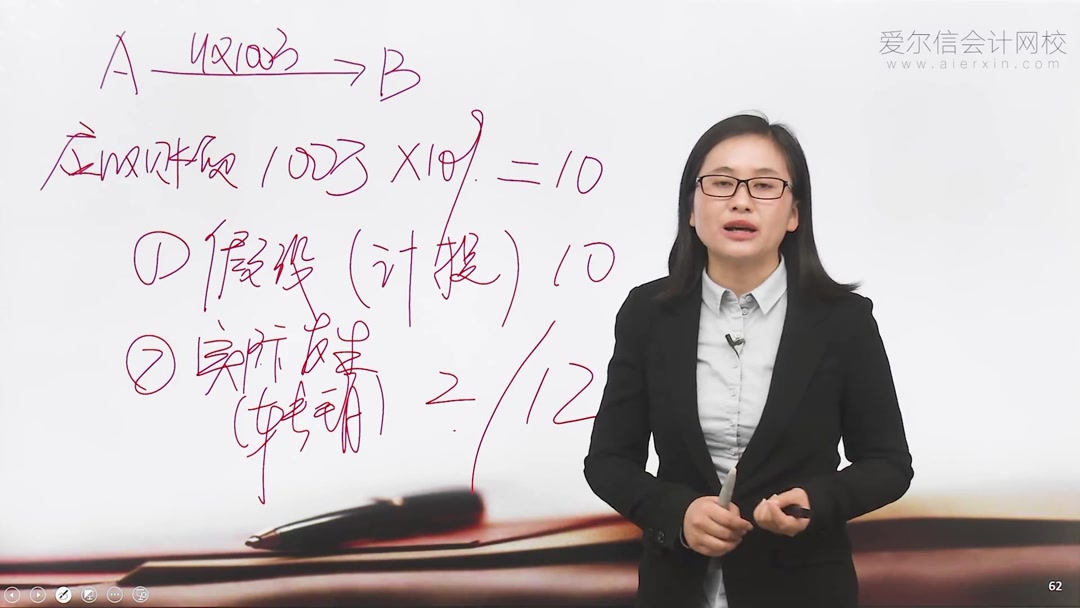 爱尔信会计网校
www.aierxin.com
A 收100万 B
应收账款 100万×10%=10
① 假设(计提) 10
② 实际发生 2/12
(转销)
62